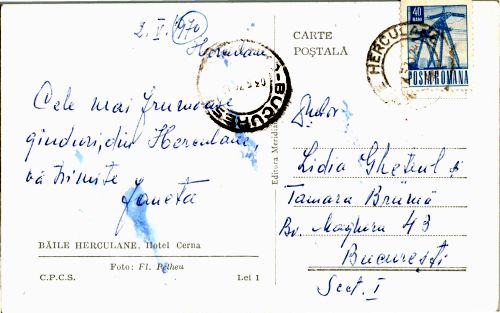 2. V. 1970
Herculane
Cele mai frumoase
gînduri, din Herculane,
vă trimite
Janeta
BĂILE HERCULANE, Hotel Cerna
Foto: Fl. Petheu
C.P.C.S. Lei 1
Editura Meridiane
CARTE
POȘTALĂ
40
BANI
POSTA ROMANA
HERCULANE
BUCUREȘTI
Lidia și
Tamara Brumă
Bv. Magheru 43
București
Sect. I